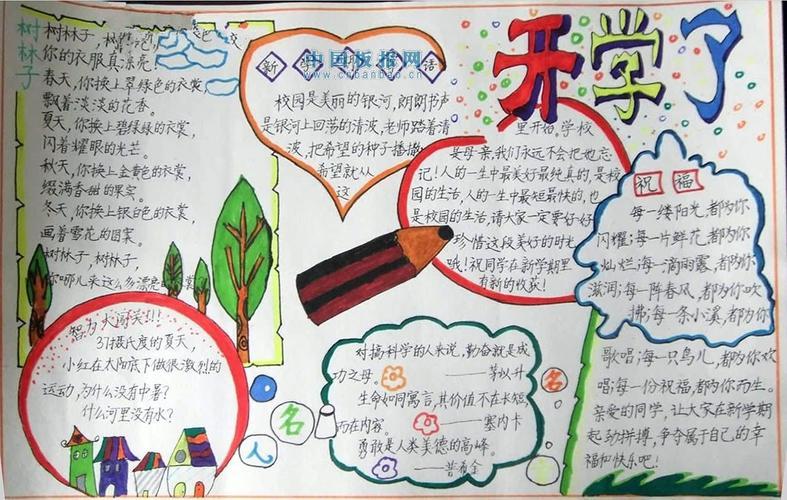 开学了
树林子
树林子,树
你的衣服真漂亮
春天,你换上翠绿色的衣裳
飘着淡淡的花香。
夏天,你换上碧绿绿的衣裳,
闪着耀眼的光芒。
秋天,你换上金黄色的衣裳,
缀满香甜的果实。
冬天,你换上银白色的衣裳,
画着雪花的图案。
树林子,树林子,
你哪儿来这么多漂亮的衣裳
中国板报网
www.cnbanbao.cn
新学
语
校园是美丽的银河,朗朗书声
是银河上回荡的清波,老师踏着清
波,把希望的种子播撒
希望就从
这
里开始,学校
是母亲,我们永远不会把她忘
记!人的一生中最美好最纯真的,是校
园的生活,人的一生中最短最快的,也
是校园的生活,请大家一定要好好
珍惜这段美好的时光
哦!祝同学在新学期里
有新的收获!
祝福
每一缕阳光,都为你
闪耀;每一片鲜花,都为你
灿烂;每一滴雨露,都为你
滋润;每一阵春风,都为你吹
拂;每一条小溪,都为你
歌唱;每一只鸟儿,都为你欢
唱;每一份祝福,都为你而生。
亲爱的同学,让大家在新学期
起动拼搏,争夺属于自己的幸
福和快乐吧!
智力大闯关!!!
31摄氏度的夏天,
小红在太阳底下做很激烈的
运动,为什么没有中暑?
什么河里没有水?
名人名言
对搞科学的人来说,勤奋就是成
功之母。——茅以升
生命如同寓言,其价值不在长短,
而在内容。——塞内卡
勇敢是人类美德的高峰。
——普希金